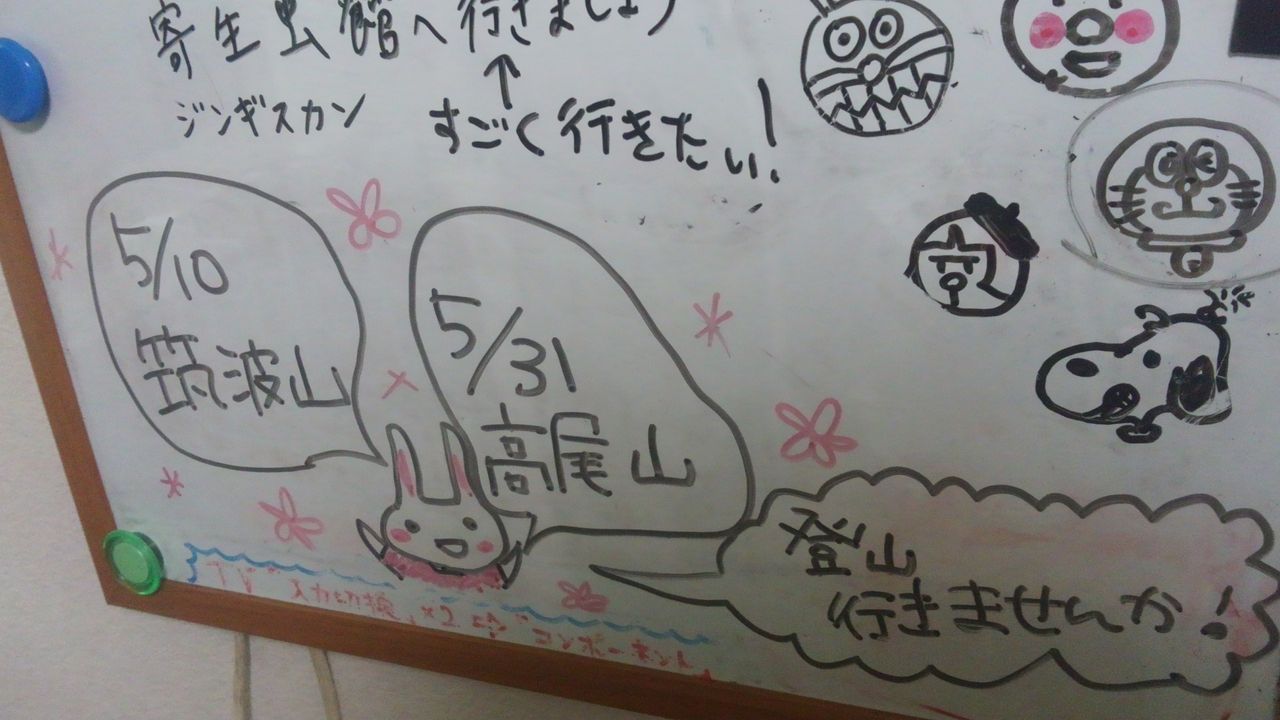 寄生虫館へ行きましょう
ジンギスカン
↑
すごく行きたい!
5/10
筑波山
5/31
高尾山
登山
行きませんか!
TV"入力切換"×2回"コンポーネント"